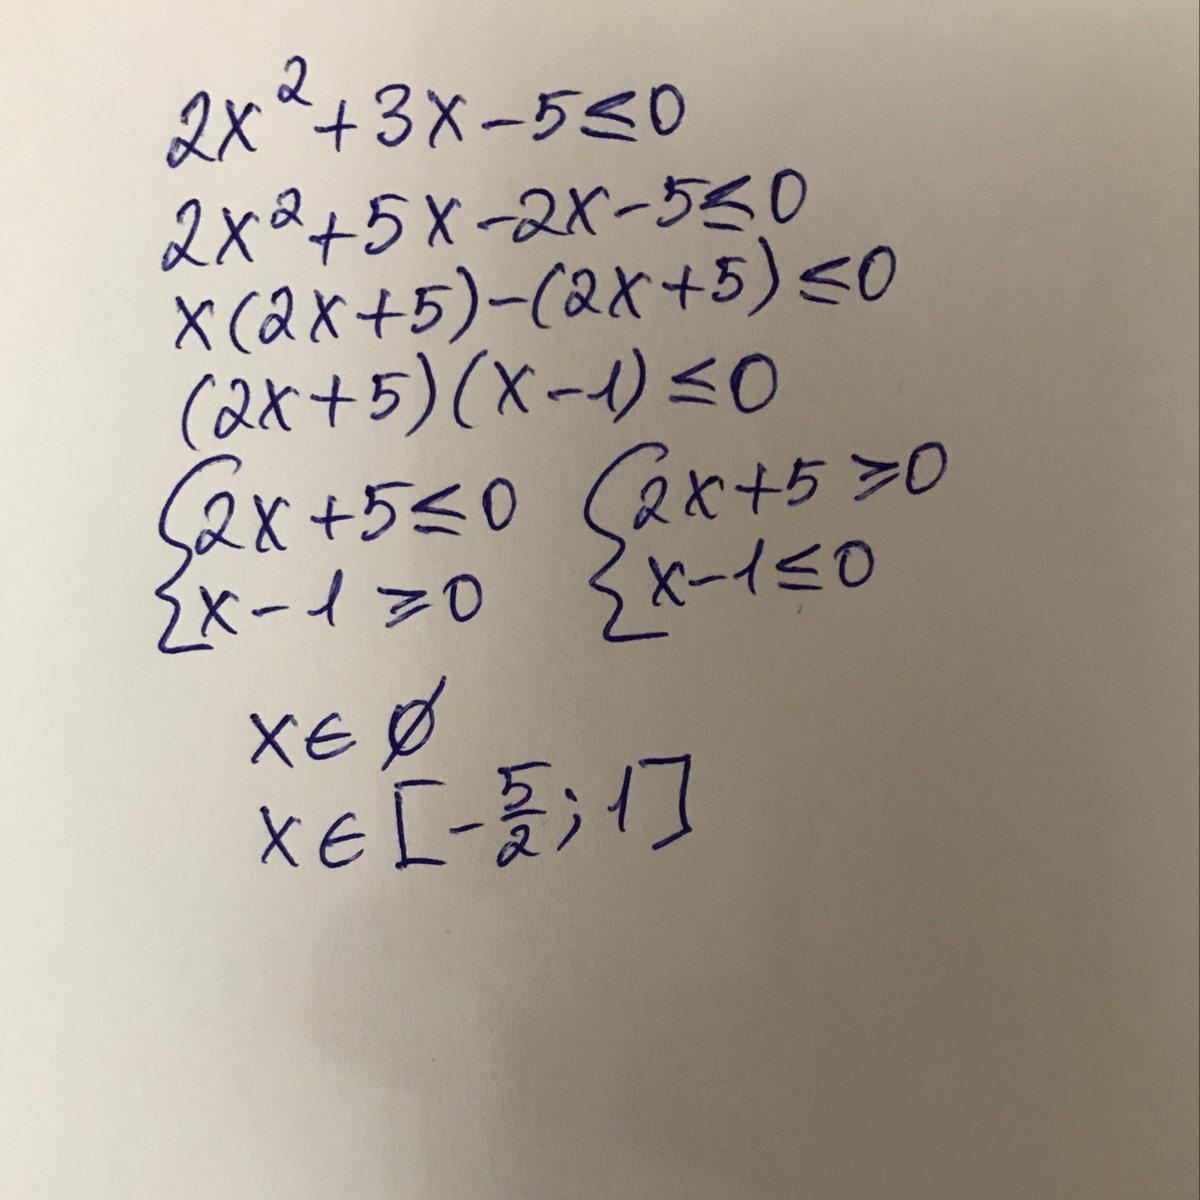 2x² + 3x - 5 ≤ 0
2x² + 5x - 2x - 5 ≤ 0
x(2x + 5) - (2x + 5) ≤ 0
(2x + 5)(x - 1) ≤ 0
{2x + 5 ≤ 0 {2x + 5 ≥ 0
x - 1 ≥ 0 x - 1 ≤ 0
x ∈ ∅
x ∈ [-5/2; 1]